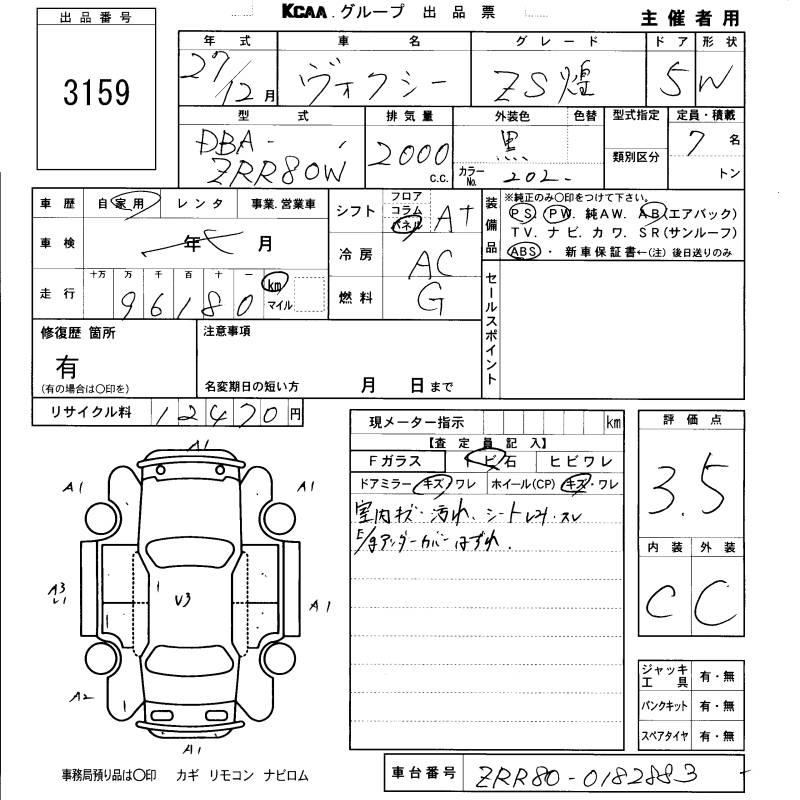 KCAA.グループ 出品票
主催者用
出品番号
3159
年式 車名 グレード ドア 形状
27/12月 ヴォクシー ZS煌 5 W
型式 排気量 外装色 色替 型式指定 定員・積載
DBA-
ZRR80W 2000 c.c. 黒 7名
カラーNo. 202. 類別区分 トン
車歴 自家用 レンタ 事業.営業車
車検 年 月
走行 十万 万 千 百 十 一
96180 km マイル
シフト フロア コラム パネル AT
冷房 AC
燃料 G
装備品 ※純正のみ〇印をつけて下さい。
PS. PW. 純AW. AB(エアバック)
TV. ナビ. カワ. SR(サンルーフ)
ABS ・ 新車保証書←(注) 後日送りのみ
セールスポイント
修復歴 箇所
有
(有の場合は〇印を)
注意事項
名変期日の短い方 月 日まで
リサイクル料 12470円
現メーター指示 km
【査定員記入】
Fガラス トビ石 ヒビワレ
ドアミラー キズ・ワレ ホイール(CP) キズ・ワレ
室内キズ・汚れ、シート
アンダーカバーはずれ.
評価点
3.5
内装 外装
C C
ジャッキ工具 有・無
パンクキット 有・無
スペアタイヤ 有・無
A1
A1 A1
A3
V3
A1
A2 A1
A1
事務局預り品は〇印 カギ リモコン ナビロム
車台番号 ZRR80-0182883